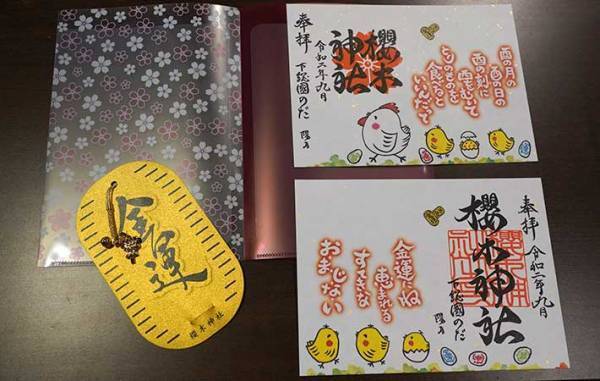 奉拝
令和二年九月
櫻木
神社
下総國のだ
酉の月の
酉の日の
酉の刻に
西をむいて
とりのものを
食べると
いいんだって
奉拝
令和二年九月
櫻木神社
下総國のだ
金運にね
恵まれる
すてきな
おまじない
金運
櫻木神社